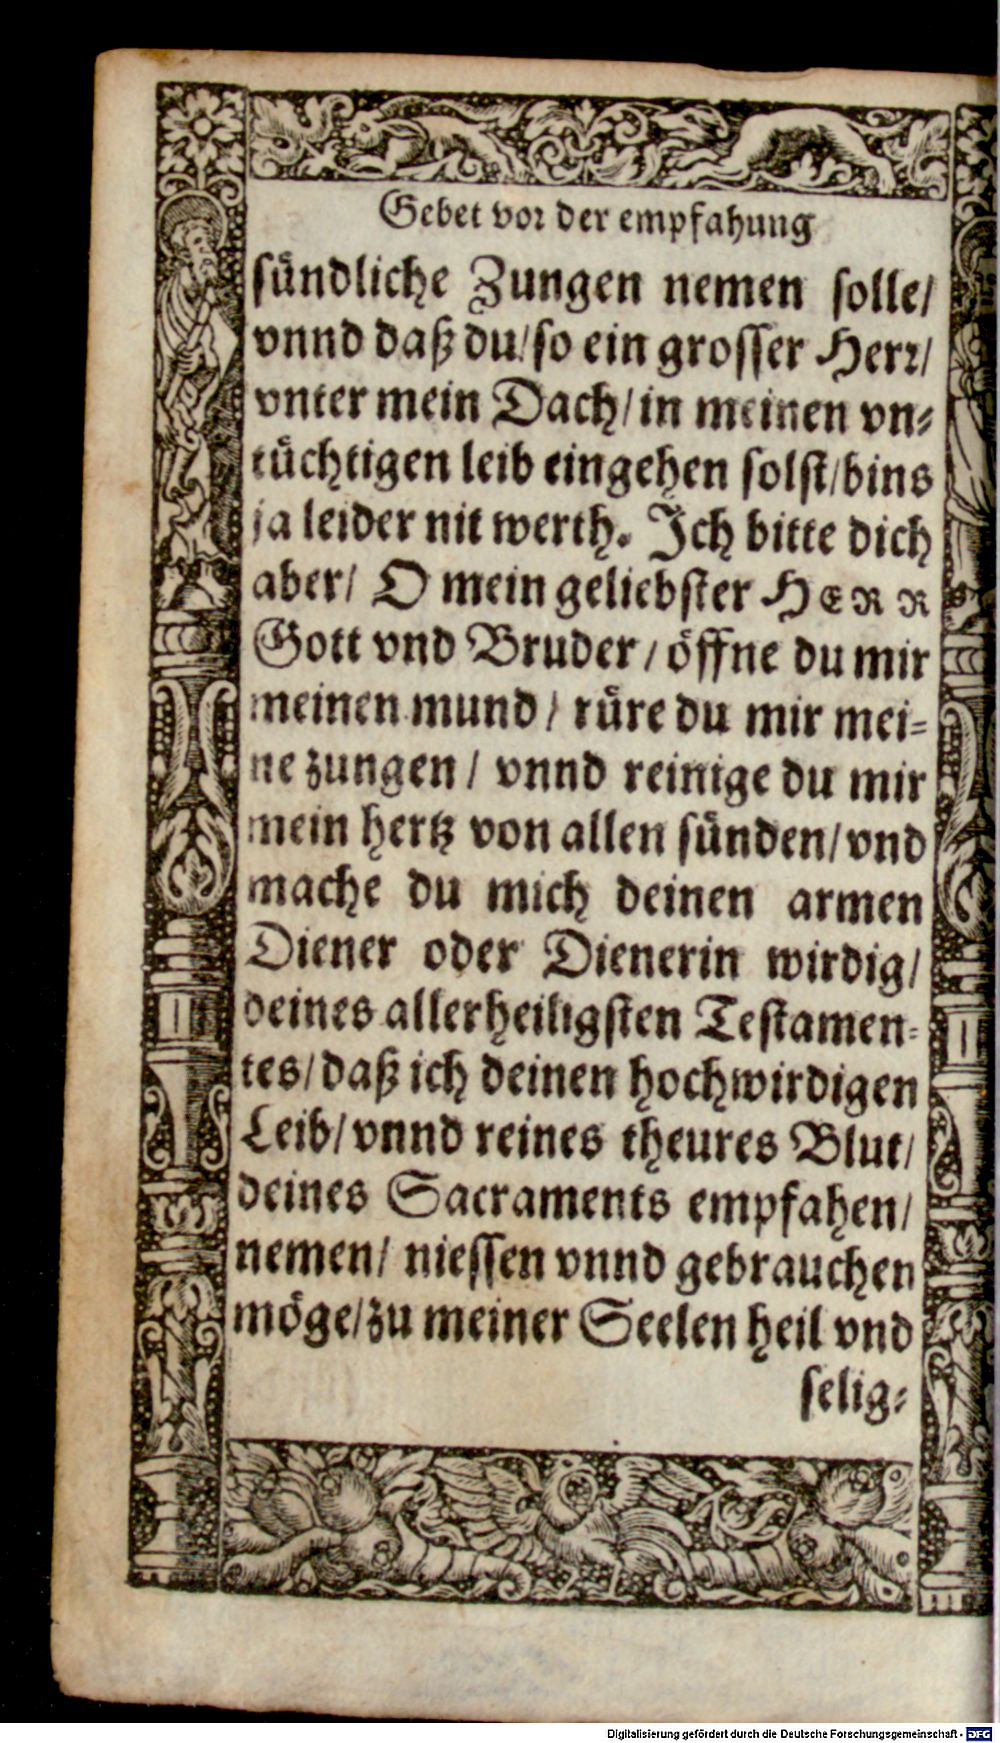 Gebet vor der empfahung
sündliche Zungen nemen solle/
vnnd daß du/ so ein grosser Herr/
vnter mein Dach/ in meinen vn⸗
tüchtigen leib eingehen solst/ bins
ja leider nit werth. Ich bitte dich
aber/ O mein geliebster HERR
Gott vnd Bruder/ öffne du mir
meinen mund/ rüre du mir mei⸗
ne zungen/ vnnd reinige du mir
mein hertz von allen sünden/ vnd
mache du mich deinen armen
Diener oder Dienerin wirdig/
deines allerheiligsten Testamen⸗
tes/ daß ich deinen hochwirdigen
Leib/ vnnd reines theures Blut/
deines Sacraments empfahen/
nemen/ niessen vnnd gebrauchen
möge/ zu meiner Seelen heil vnd
selig⸗
Digitalisierung gefördert durch die Deutsche Forschungsgemeinschaft - DFG